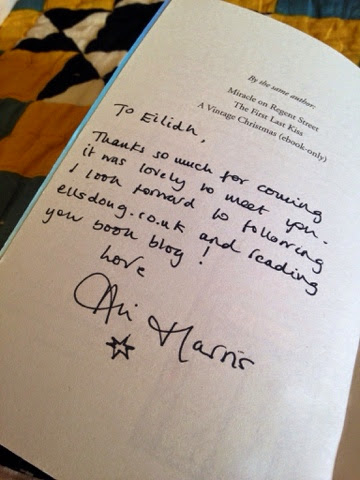 By the same author:
Miracle on Regent Street
The First Last Kiss
A Vintage Christmas (ebook-only)
To Eilidh,
Thanks so much for coming
it was lovely to meet you.
I look forward to following
ellsdoug.co.uk and reading
your book blog!
Love
Ali Harris